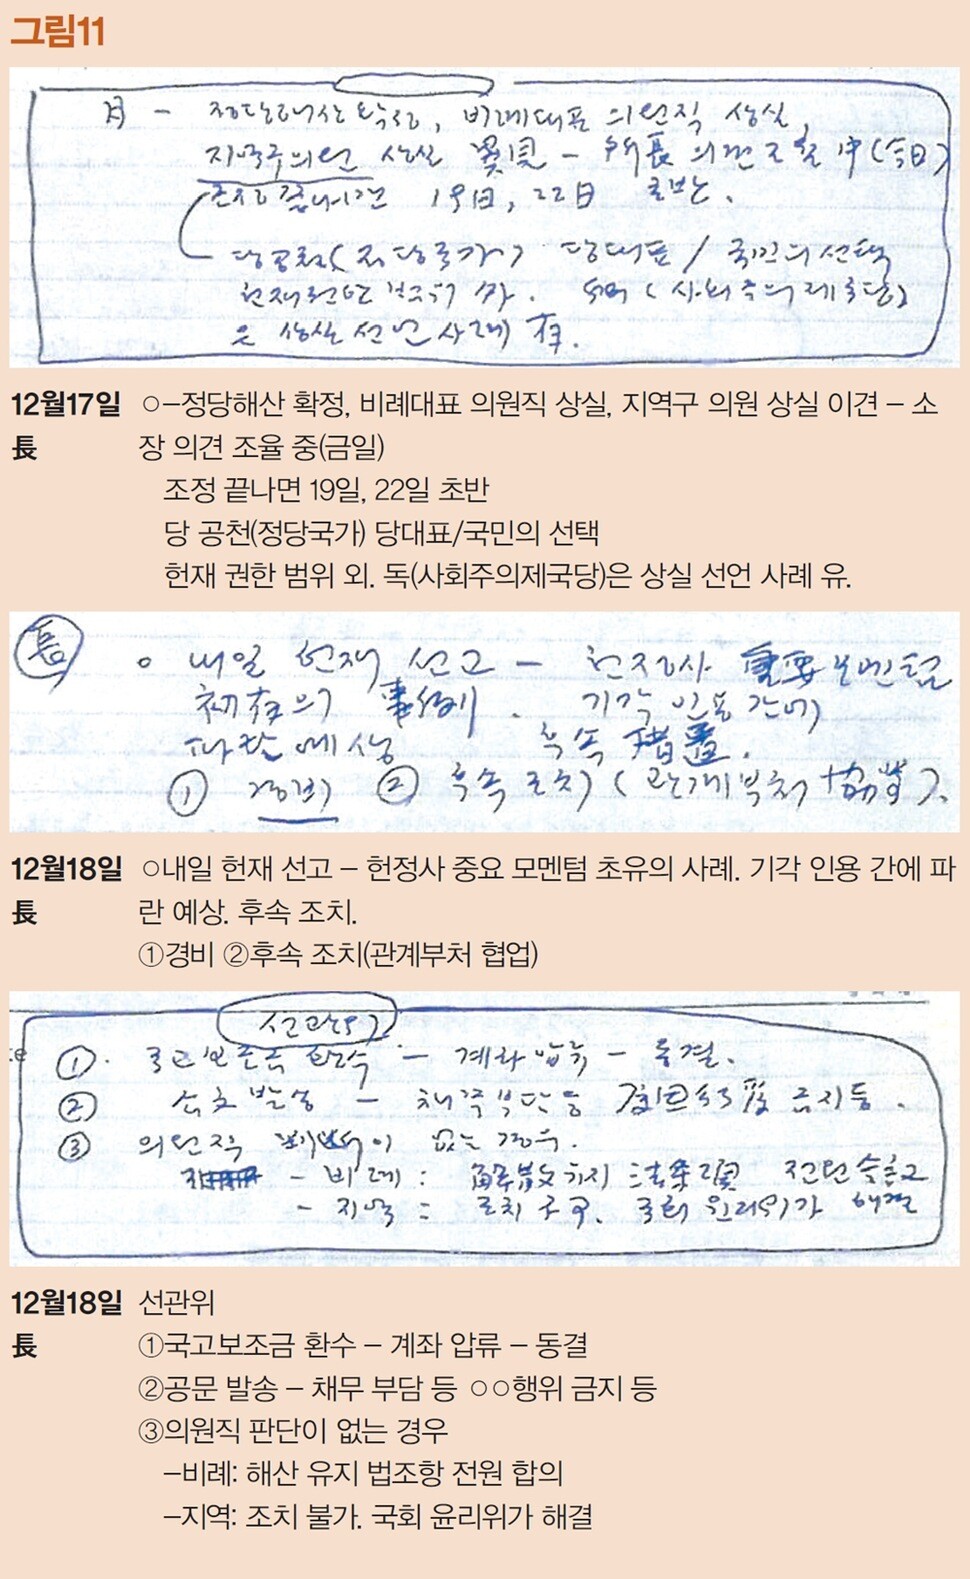 그림11
정당해산 확정, 비례대표 의원직 상실,
지역구의원 상실 異見 – 所長 의견 조율 中(今日)
조정 끝나면 19日, 22日 초반.
당공천(정당국가) 당대표/국민의 선택
헌재권한 범위 外. 독(사회주의제국당)
은 상실 선언 사례 有.
12월17일 ○–정당해산 확정, 비례대표 의원직 상실, 지역구 의원 상실 이견 – 소
長 장 의견 조율 중(금일)
조정 끝나면 19일, 22일 초반
당 공천(정당국가) 당대표/국민의 선택
헌재 권한 범위 외. 독(사회주의제국당)은 상실 선언 사례 유.
長 ○ 내일 헌재 선고 – 헌정사 重要 모멘텀
初有의 事例. 기각 인용 간에
파란 예상 후속 措置.
① 경비 ② 후속 조치(관계부처 協業).
12월18일 ○내일 헌재 선고 – 헌정사 중요 모멘텀 초유의 사례. 기각 인용 간에 파
長 란 예상. 후속 조치.
①경비 ②후속 조치(관계부처 협업)
선관위
①. 국고보조금 환수 – 계좌 압류 – 동결.
② 공문 발송 – 채무부담 등 금지 등.
③ 의원직 판단이 없는 경우.
– 비례: 解散 전원
– 지역: 조치 불가. 국회 윤리위가 해결
12월18일 선관위
長 ①국고보조금 환수 – 계좌 압류 – 동결
②공문 발송 – 채무 부담 등 ○○행위 금지 등
③의원직 판단이 없는 경우
–비례: 해산 유지 법조항 전원 합의
–지역: 조치 불가. 국회 윤리위가 해결